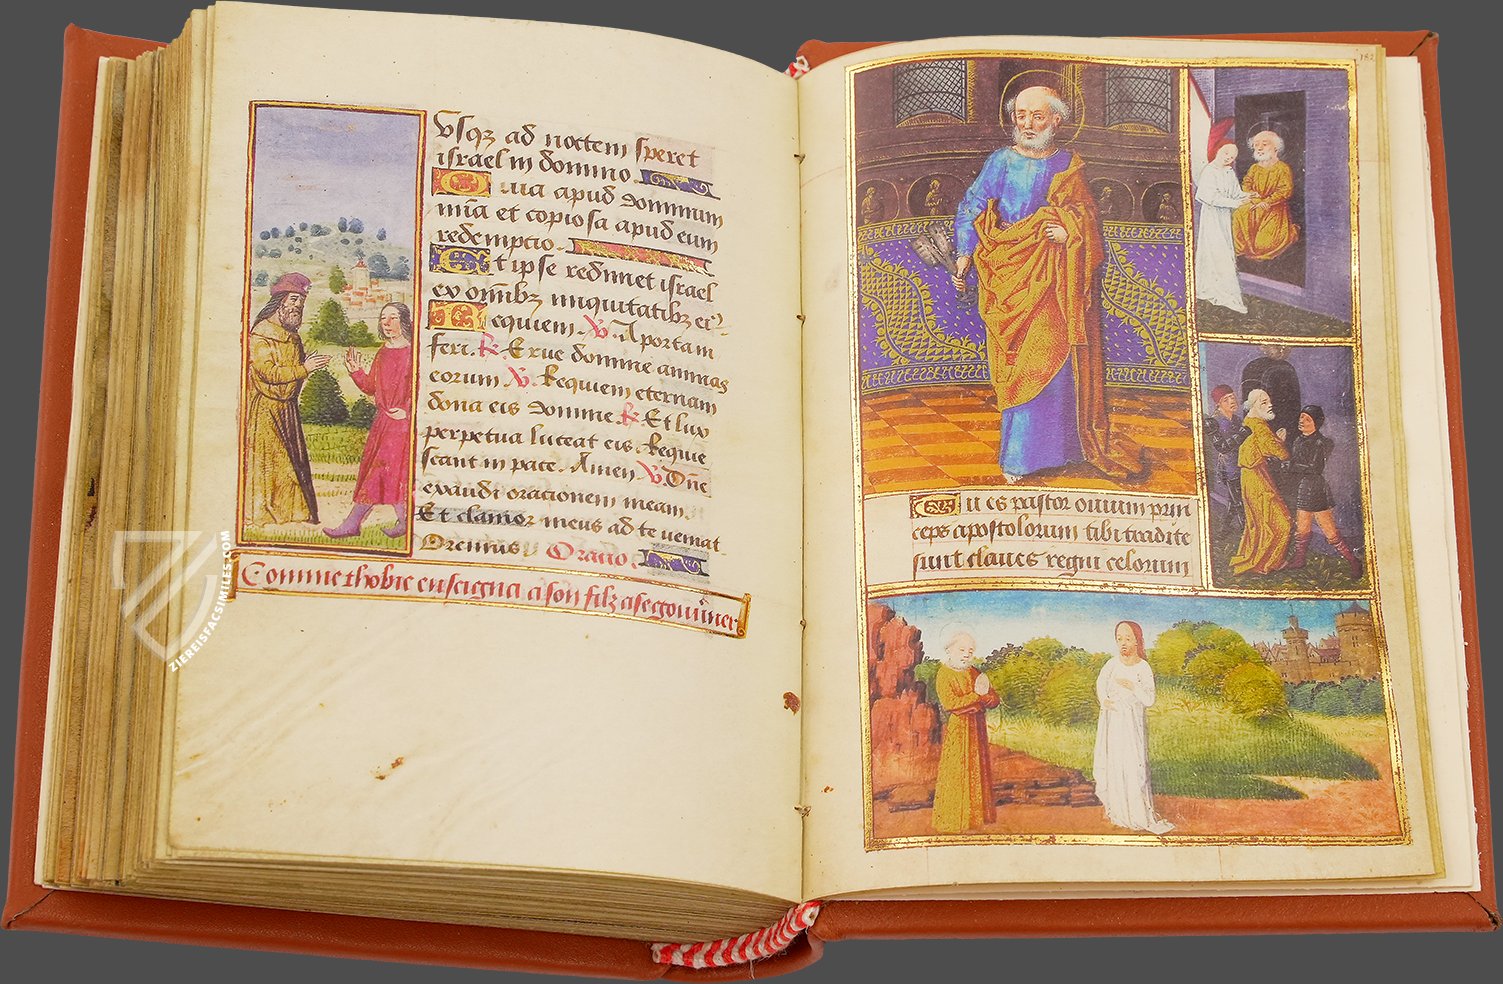 Usqz ad noctem speret
israel in domino.
Quia apud dominum
mia et copiosa apud eum
redemptio.
Et ipse redimet israel
ex omibz iniquitatibz ei9
Requiem. V. A porta in
feri. R. Erue domine animas
eorum V. Requiem eternam
dona eis domine R. Et lux
perpetua luceat eis. Requie
scant in pace. Amen V. Dne
exaudi orationem meam.
Et clamor meus ad te veniat
Oremus Oratio.
Comme thobie enseigna a son filz a se gouverner
182
Tu es pastor ovium prin
ceps apostolorum tibi tradite
sunt claves regni celorum
ZIEREISFACSIMILES.COM